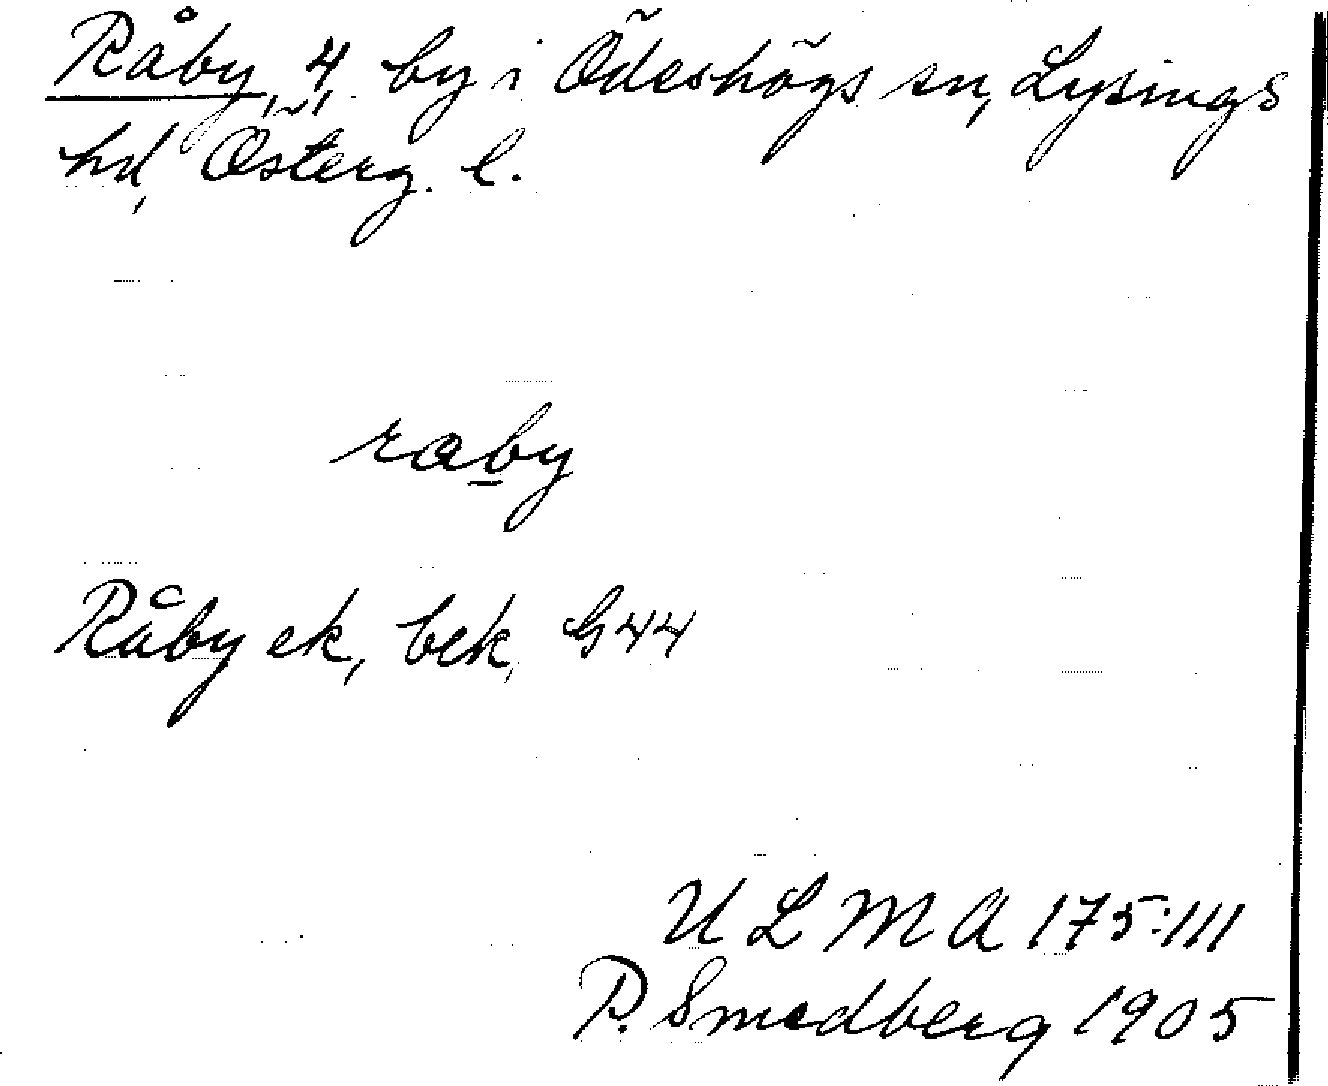 Råby, 4, by i Ödeshögs sn, Lysings
hd, Österg. l.
raby
Råby ek, bek, G44
ULMA 175:111
P. Smedberg 1905